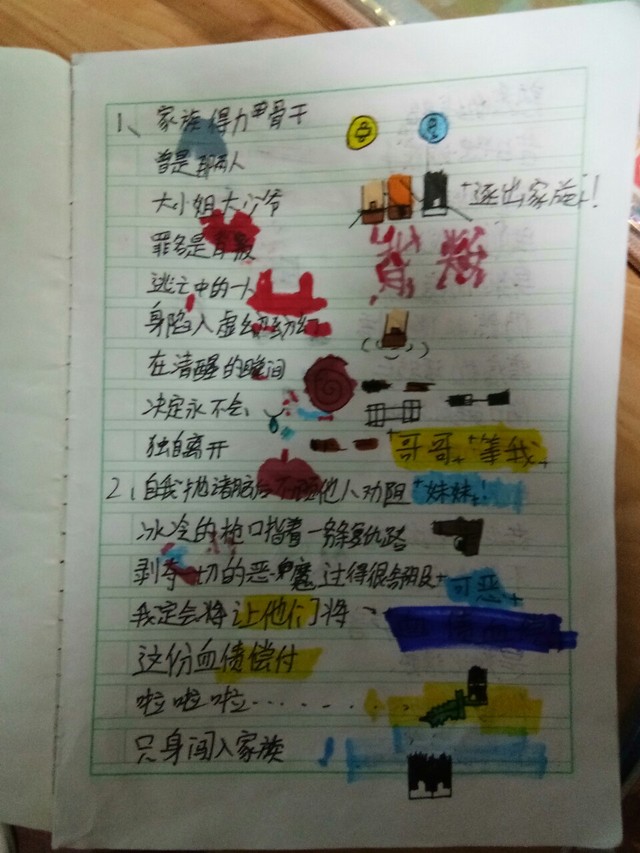 1、家族得力骨干
曾是两人
大小姐大少爷 "逐出家族"!
罪名是背叛
逃亡中的一人
身陷入虚幻
在清醒的瞬间
决定永不会、
独自离开 "哥哥" "等我"
2、自我抛诸脑后不顾他人劝阻 "妹妹"!
冰冷的枪口指着一条复仇路
剥夺一切的恶魔过得很 "可恶"
我定会将让他们将
这份血债偿付
啦啦啦......
只身闯入家族